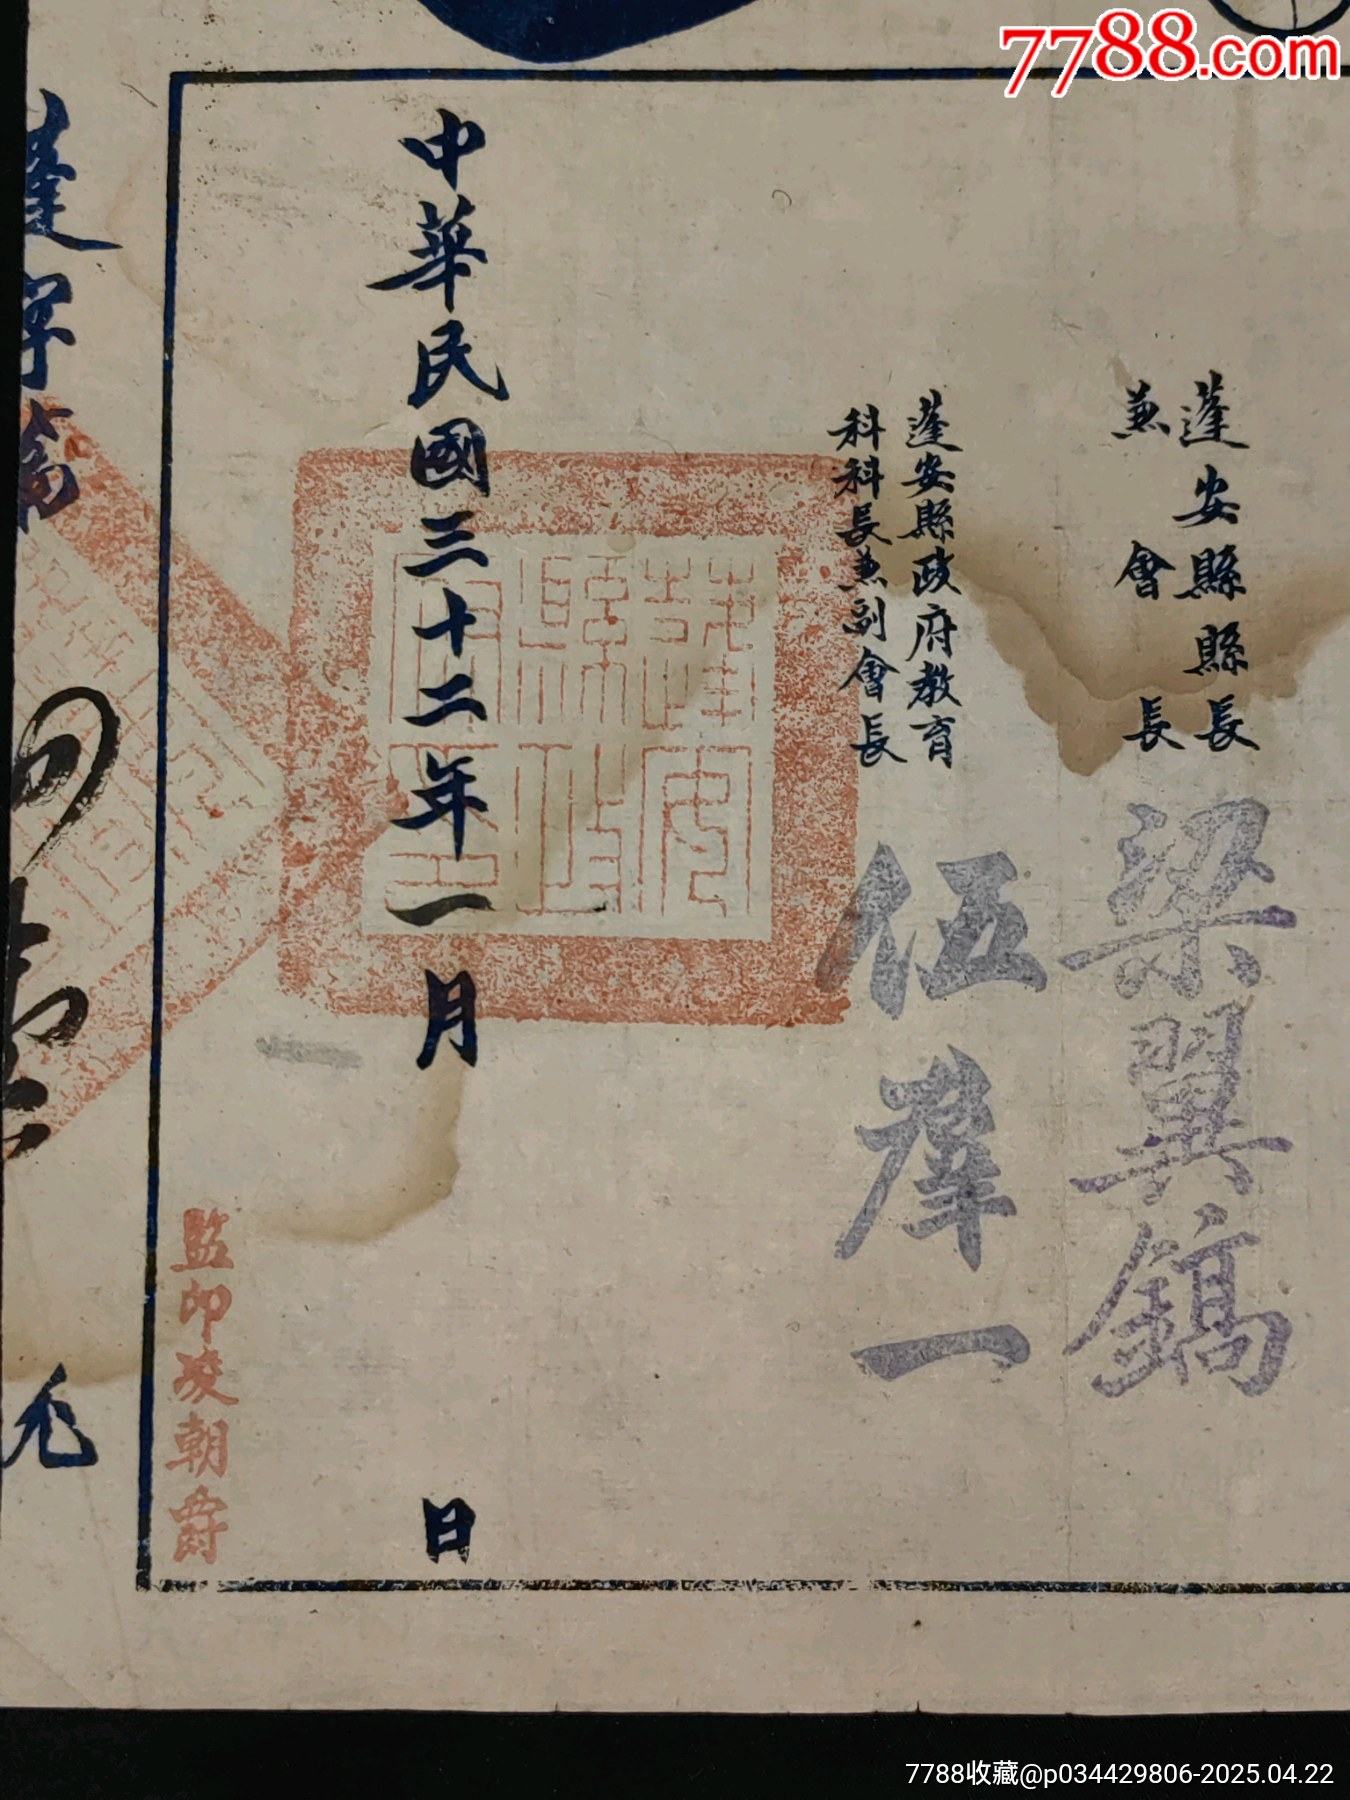 7788.com
蓬安縣縣長
兼會長
梁翼鎬
蓬安縣政府教育
科科長兼副會長
伍羣一
蓬安縣政府印
中華民國三十二年一月 日
監印凌朝爵
蓬字
7788收藏@p034429806-2025.04.22